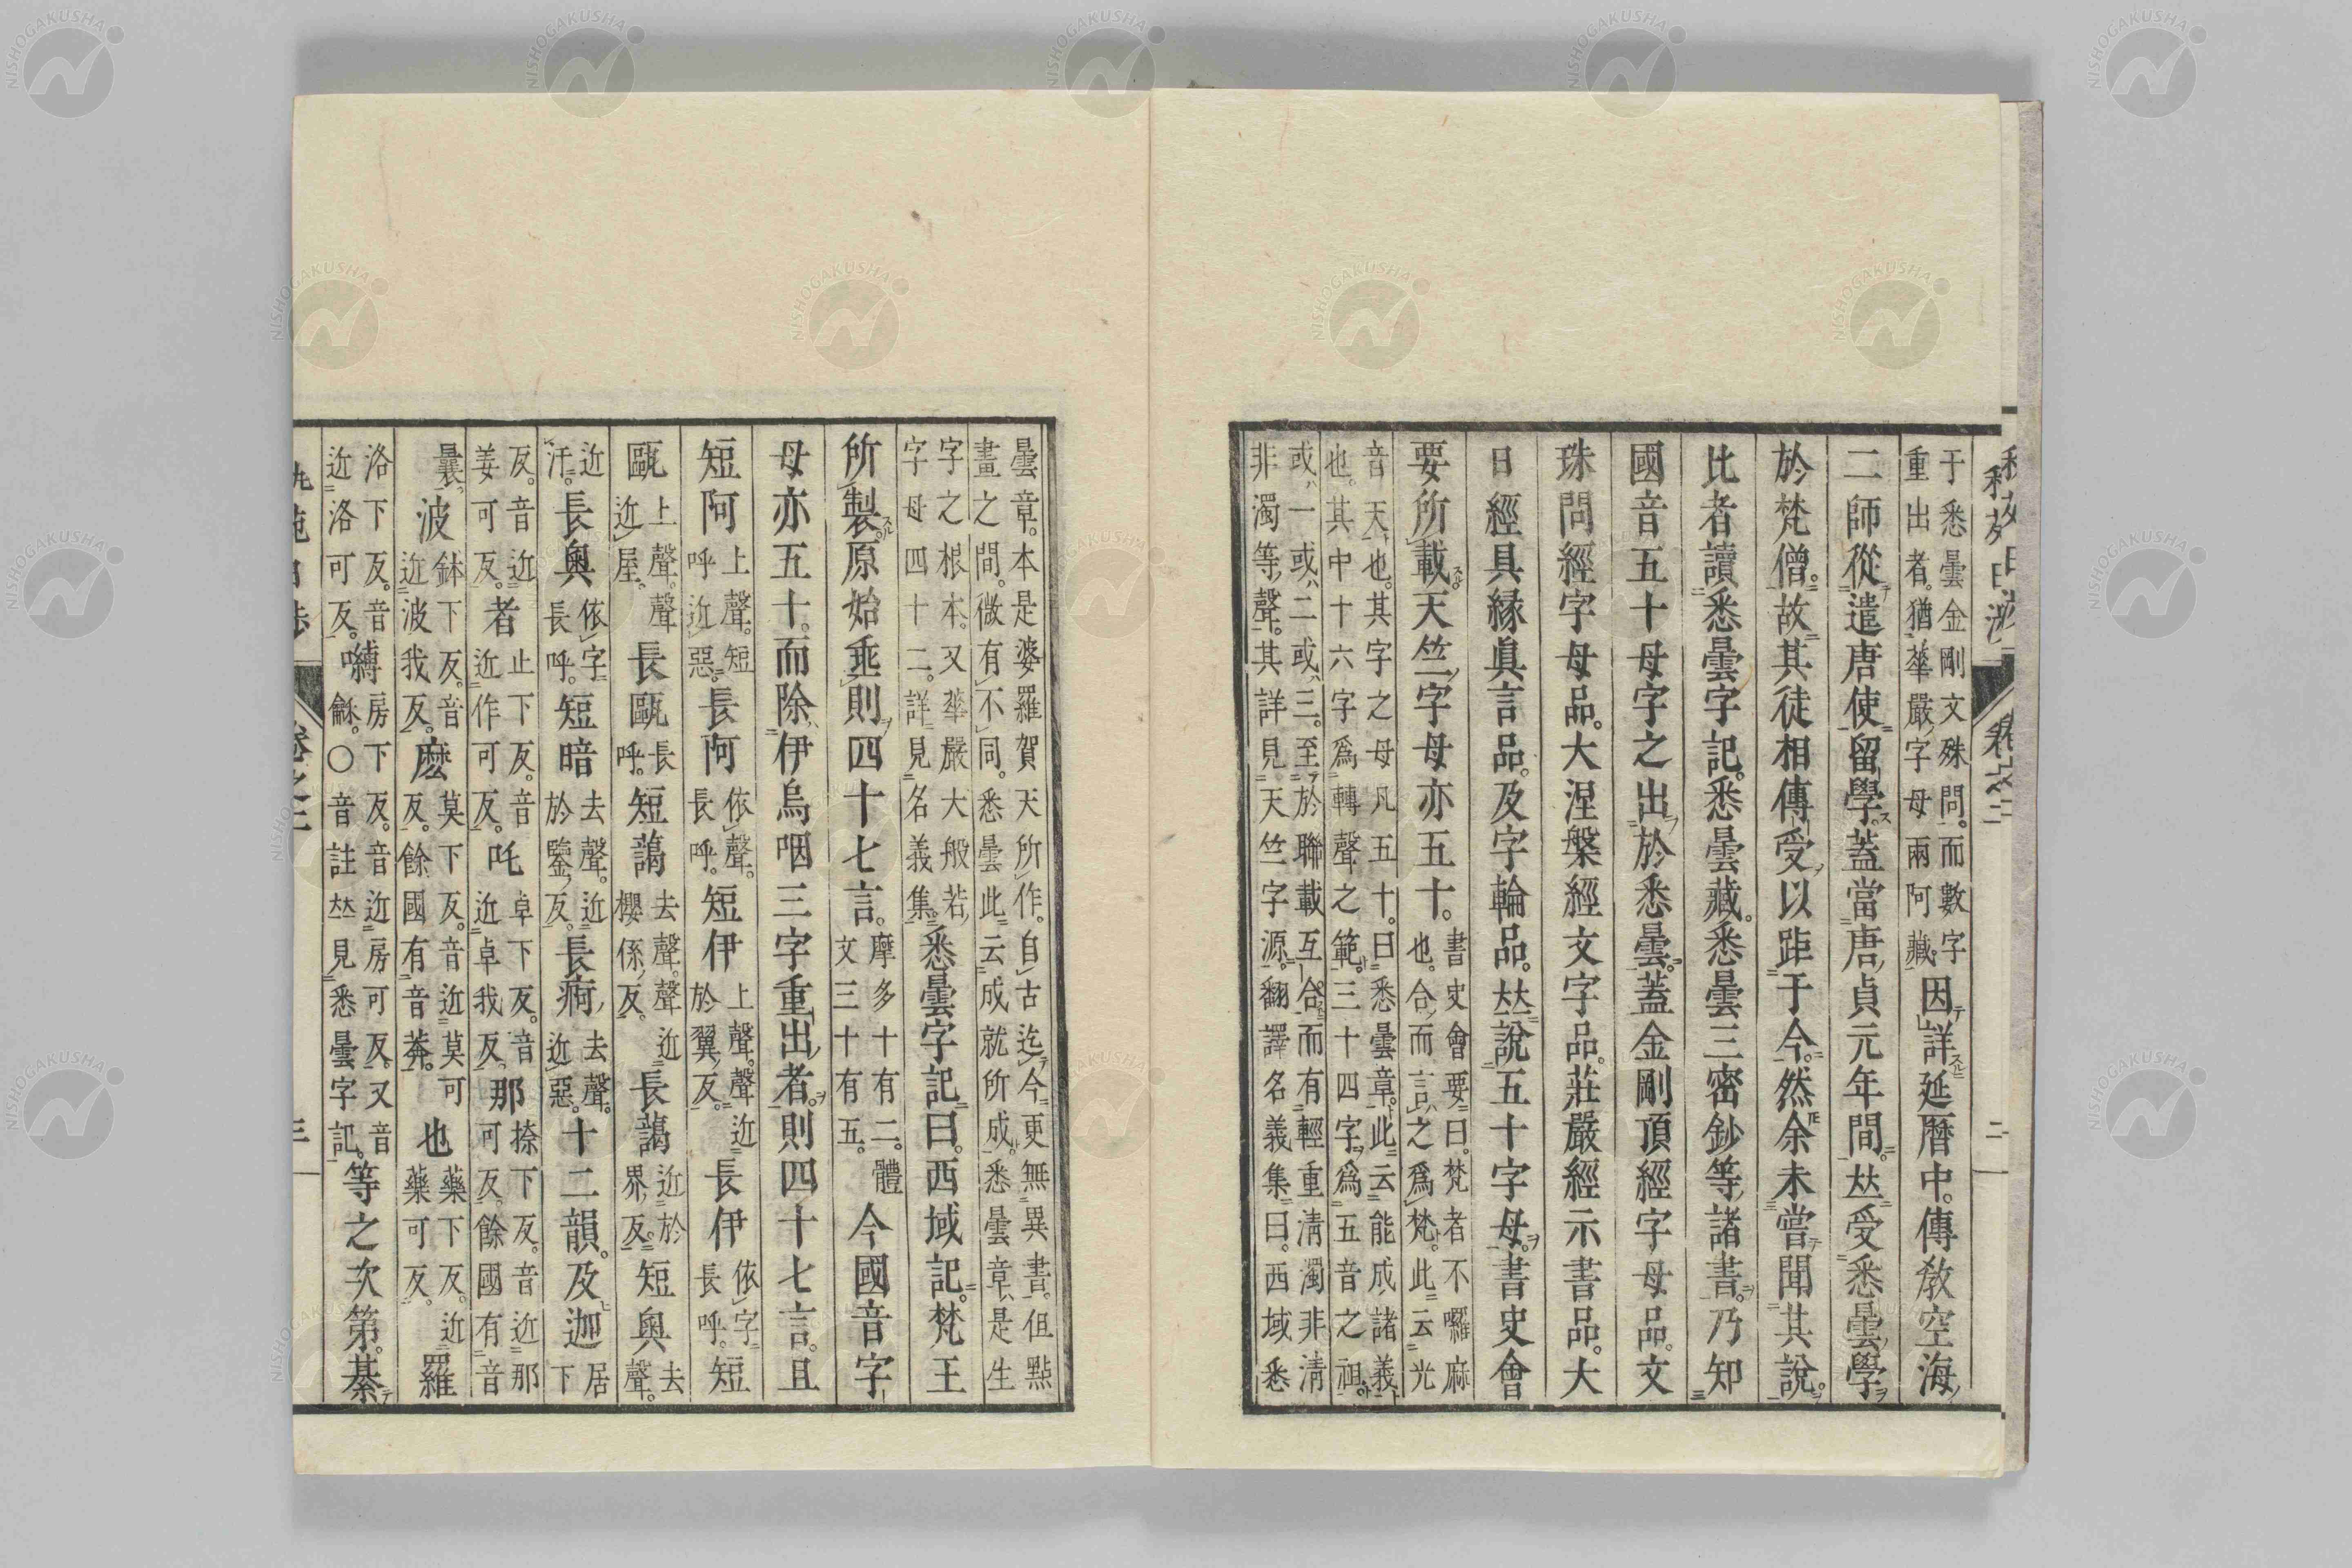 于悉曇金剛文殊問。而數字
重出者。猶華嚴字母兩阿藏
因詳延曆中。傳教空海
二師從遣唐使留學。蓋當唐貞元年間。𠀤受悉曇學
於梵僧。故其徒相傳受以距于今。然余未嘗聞其說。
比者讀悉曇字記。悉曇藏。悉曇三密鈔等諸書。乃知
國音五十母字之出於悉曇。蓋金剛頂經字母品。文
珠問經字母品。大涅槃經文字品。莊嚴經示書品。大
日經具緣眞言品。及字輪品。𠀤說五十字母。書史會
要所載天竺字母亦五十。
書史會要曰。梵者不囉麻
也。合而言之爲梵。此云光
音天也。其字之母凡五十。曰悉曇章。此云能成諸義
也。其中十六字爲轉聲之範。三十四字爲五音之祖。
或一或二或三。至於聯載互合而有輕重淸濁非淸
非濁等聲。其詳見天竺字源。翻譯名義集曰。西域悉
曇章。本是婆羅賀天所作。自古迄今更無異書。但點
畫之間。微有不同。悉曇此云成就所成。悉曇章是生
字之根本。又華嚴大般若
字母四十二。詳見名義集
悉曇字記曰。西域記。梵王
所製。原始垂則四十七言。
摩多十有二。體
文三十有五。
今國音字
母亦五十。而除伊烏咽三字重出者。則四十七言。且
短阿
上聲。短
呼近惡。
長阿
依聲。
長呼。
短伊
上聲。聲近
於翼反。
長伊
依字
長呼。
短
甌
上聲。聲
近屋。
長甌
長
呼。
短藹
去聲。聲近
櫻係反。
長藹
近於
界反。
短奥
去
聲。
近
汙。
長奥
依字
長呼。
短暗
去聲。近
於鑒反。
長痾
去聲。
近惡。
十二韻。及迦
居
下
反。音近
姜可反。
者
止下反。音
近作可反。
吒
卓下反。音
近卓我反。
那
捺下反。音近那
可反。餘國有音
曩。
波
鉢下反。音
近波我反。
麽
莫下反。音近莫可
反。餘國有音莽。
也
藥下反。近
藥可反。
羅
洛下反。音
近洛可反。
嚩
房下反。音近房可反。又音
龢。〇音註𠀤見悉曇字記。
等之次第。綦
二
三